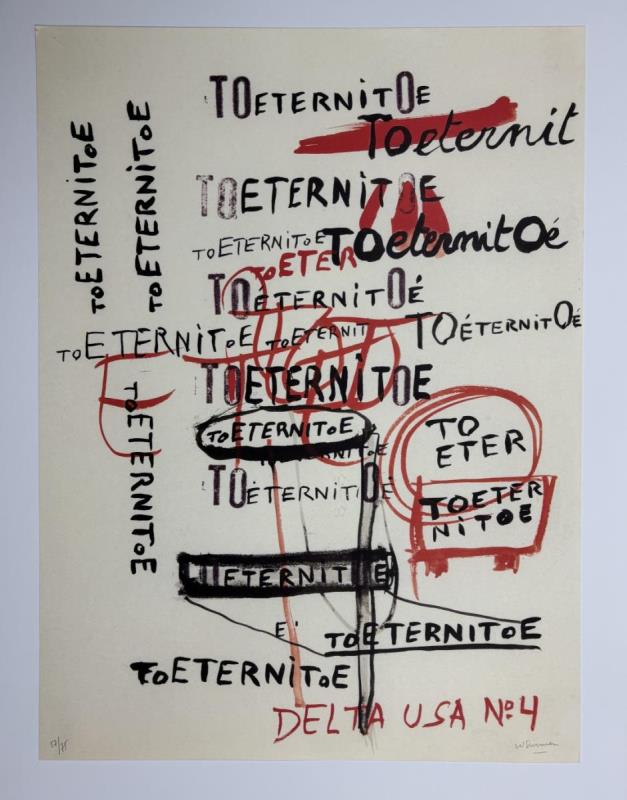 TOETERNITOE
TOeternit
TOETERNITOE
TOETERNITOE
TOETERNITOE
TOETERNITOE
TOeternitOé
TOETER
TOÉTERNITOÉ
TOETERNITOE
TOETERNIT
TOÉTERNITOÉ
TOETERNITOE
TOETERNITOE
TOETERNITOE
TO
ETER
TOETERNITOE
TOETER
NITOE
TOETERNITOE
E'
TOETERNITOE
TOETERNITOE
DELTA USA Nº4